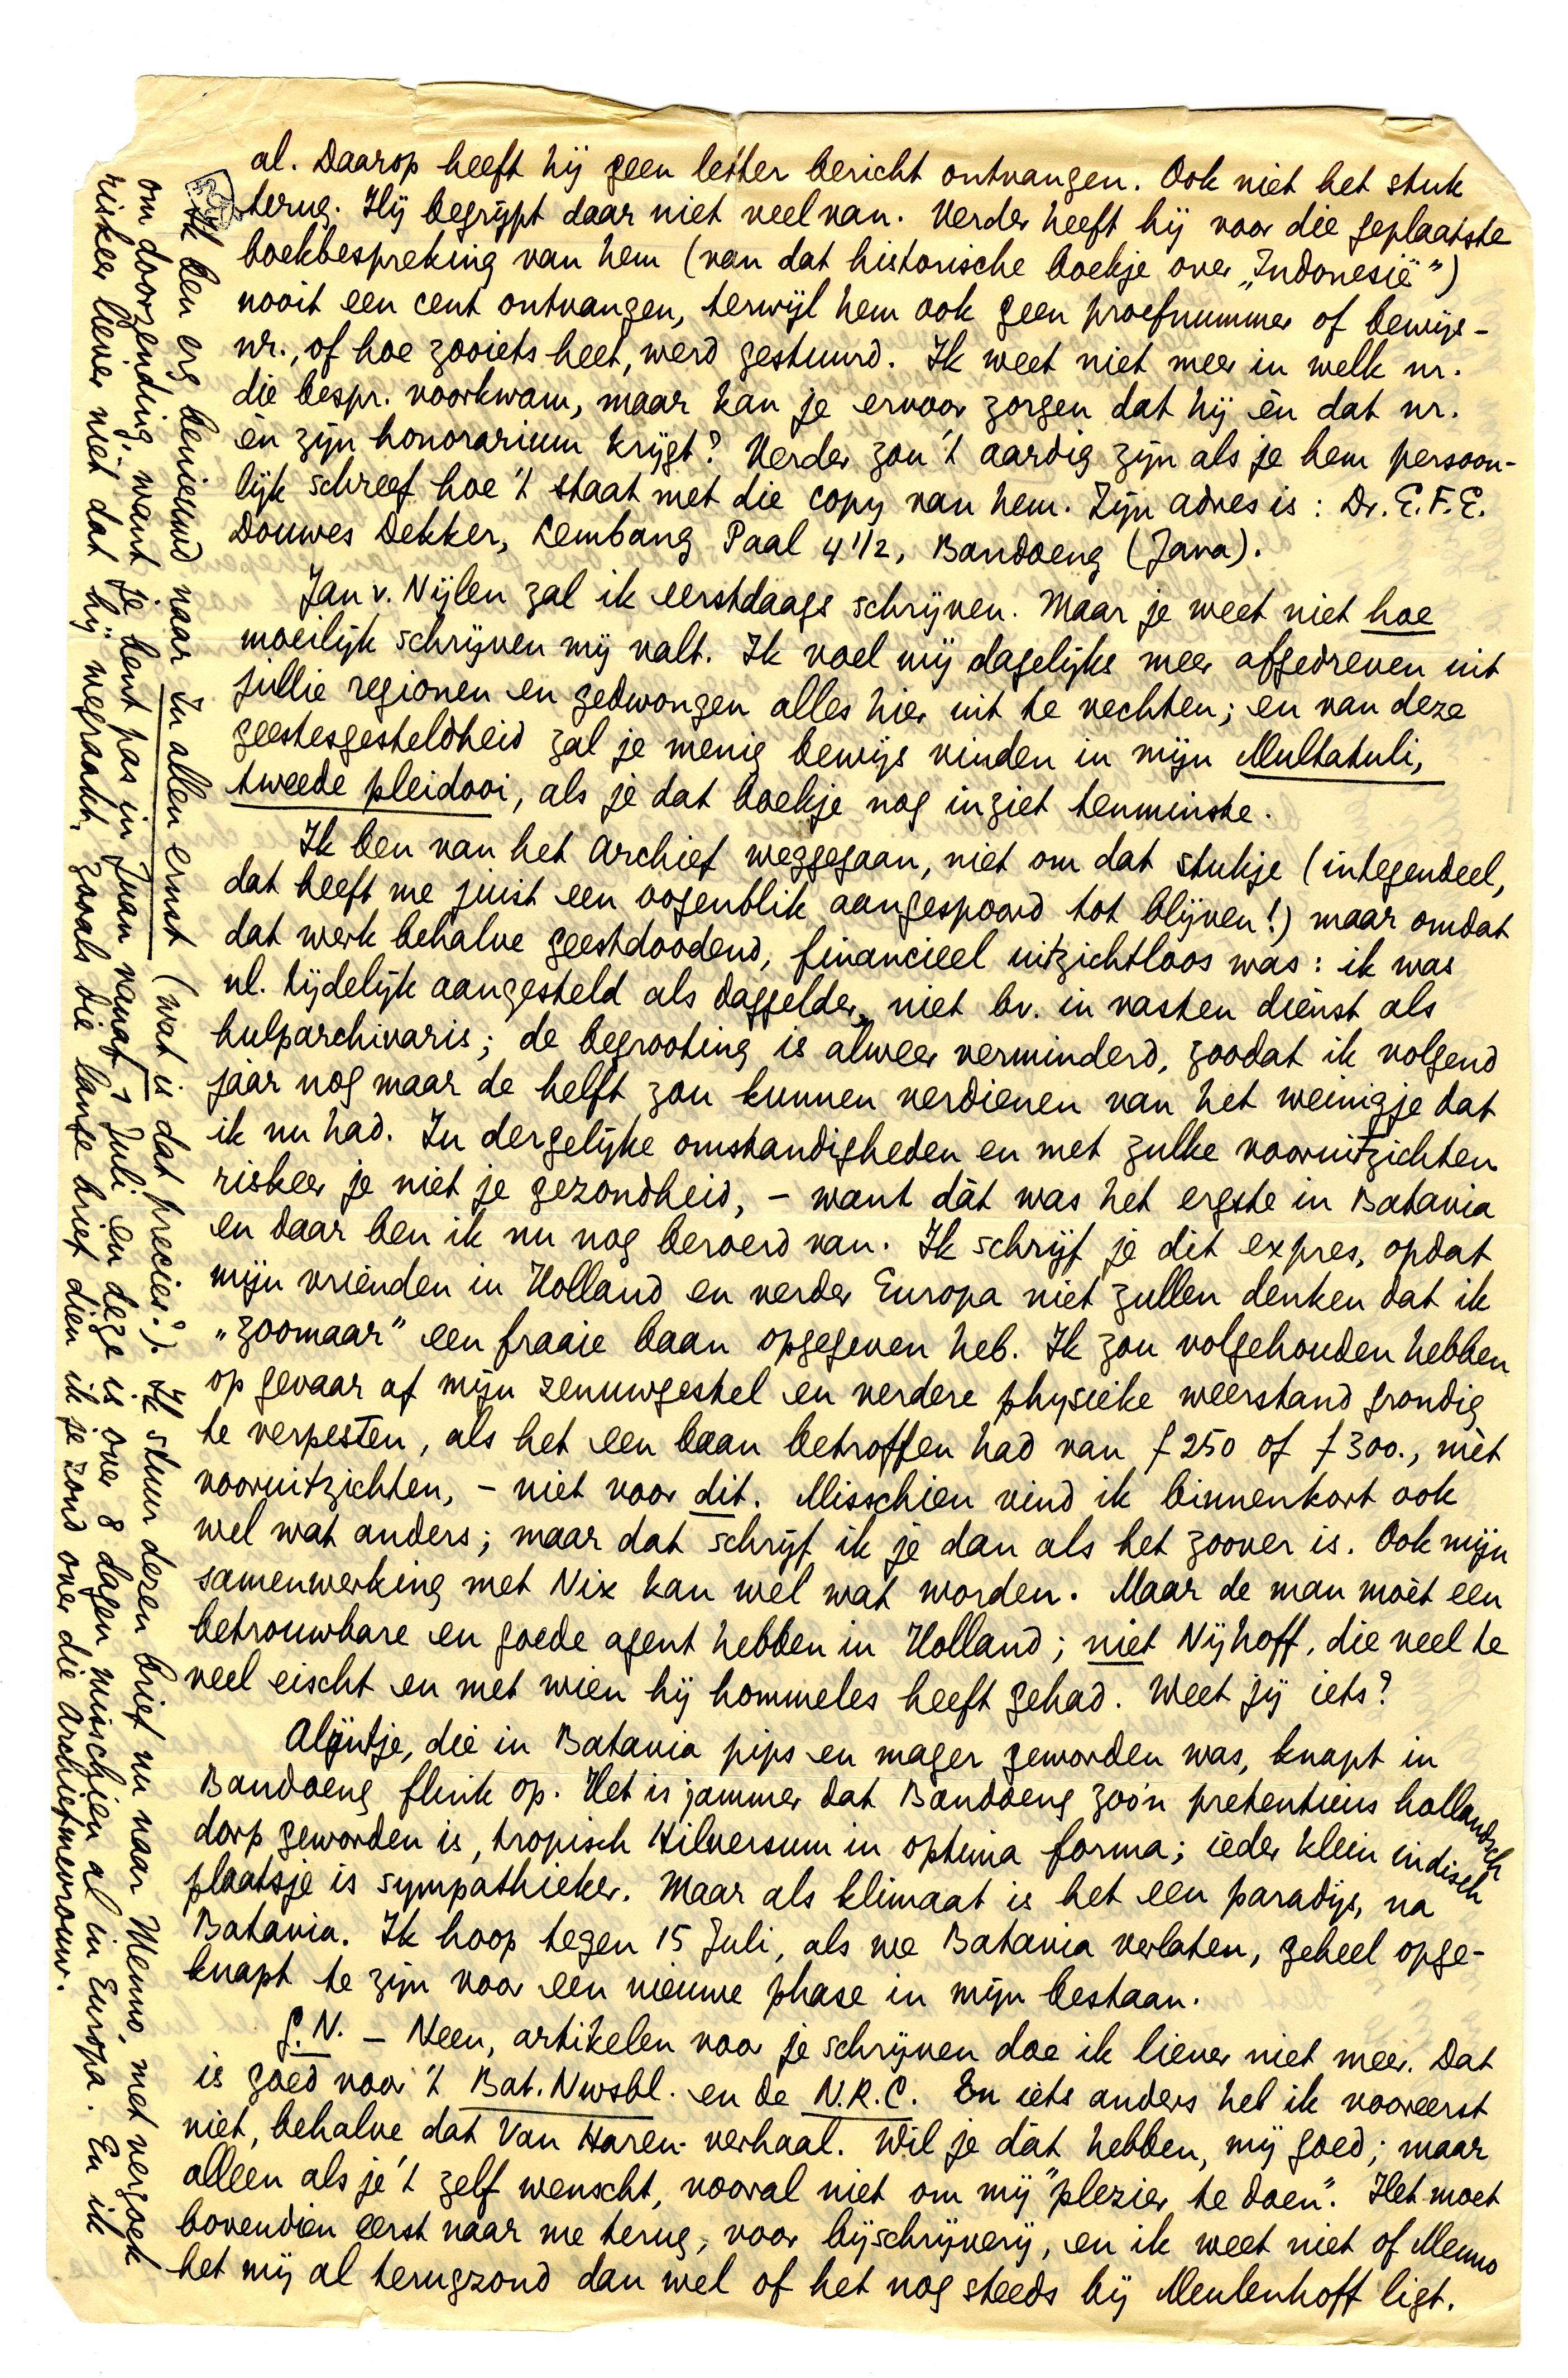 al. Daarop heeft hij geen letter bericht ontvangen. Ook niet het stuk
terug. Hij begrijpt daar niet veel van. Verder heeft hij voor die geplaatste
boekbespreking van hem (van dat historische boekje over „Indonesië")
nooit een cent ontvangen, terwijl hem ook geen proefnummer of bewijs-
nr., of hoe zooiets heet, werd gestuurd. Ik weet niet meer in welk nr.
die bespr. voorkwam, maar kan je ervoor zorgen dat hij èn dat nr.
èn zijn honorarium krijgt? Verder zou 't aardig zijn als je hem persoon-
lijk schreef hoe 't staat met die copy van hem. Zijn adres is: Dr. E.F.E.
Douwes Dekker, Lembang Paal 4 1/2, Bandoeng (Java).
Jan v. Nijlen zal ik eerstdaags schrijven. Maar je weet niet hoe
moeilijk schrijven mij valt. Ik voel mij dagelijks meer afgedreven uit
jullie regionen en gedwongen alles hier uit te vechten; en van deze
geestesgesteldheid zal je menig bewijs vinden in mijn Multatuli,
tweede pleidooi, als je dat boekje nog inziet tenminste.
Ik ben van het Archief weggegaan, niet om dat stukje (integendeel,
dat heeft me juist een oogenblik aangespoord tot blijven!) maar omdat
dat werk behalve geestdoodend, financieel uitzichtloos was: ik was
nl. tijdelijk aangesteld als daggelder, niet bv. in vasten dienst als
hulparchivaris; de begrooting is alweer verminderd, zoodat ik volgend
jaar nog maar de helft zou kunnen verdienen van het weinigje dat
ik nu had. In dergelijke omstandigheden en met zulke vooruitzichten
riskeer je niet je gezondheid, - want dàt was het ergste in Batavia
en daar ben ik nu nog beroerd van. Ik schrijf je dit expres, opdat
mijn vrienden in Holland en verder Europa niet zullen denken dat ik
„zoomaar" een fraaie baan opgegeven heb. Ik zou volgehouden hebben
op gevaar af mijn zenuwgestel en verdere physieke weerstand grondig
te verpesten, als het een baan betroffen had van f 250 of f 300., mèt
vooruitzichten, - niet voor dit. Misschien vind ik binnenkort ook
wel wat anders; maar dat schrijf ik je dan als het zoover is. Ook mijn
samenwerking met Nix kan wel wat worden. Maar de man moèt een
betrouwbare en goede agent hebben in Holland; niet Nijhoff, die veel te
veel eischt en met wien hij hommeles heeft gehad. Weet jij iets?
Alijntje, die in Batavia pips en mager geworden was, knapt in
Bandoeng flink op. Het is jammer dat Bandoeng zoo'n pretentieus hollandsch
dorp geworden is, tropisch Hilversum in optima forma; ieder klein indisch
plaatsje is sympathieker. Maar als klimaat is het een paradijs, na
Batavia. Ik hoop tegen 15 Juli, als we Batavia verlaten, geheel opge-
knapt te zijn voor een nieuwe phase in mijn bestaan.
G.N. - Neen, artikelen voor je schrijven doe ik liever niet meer. Dat
is goed voor 't Bat. Nwsbl. en de N.R.C. En iets anders heb ik vooreerst
niet, behalve dat Van Haren-verhaal. Wil je dàt hebben, mij goed; maar
alleen als je 't zelf wenscht, vooral niet om mij "plezier te doen". Het moet
bovendien eerst naar me terug, voor bijschrijverij, en ik weet niet of Menno
het mij al terugzond dan wel of het nog steeds bij Meulenhoff ligt.
Ik ben erg benieuwd naar In allen ernst (wat is dat precies?). Ik stuur dezen brief nu naar Menno, met verzoek
om doorzending, want je bent pas in Juan vanaf 1 Juli en deze is over 8 dagen misschien al in Europa. En ik
riskeer liever niet dat hij wegraakt, zooals die lange brief dien ik je zond over die Archiefmevrouw.